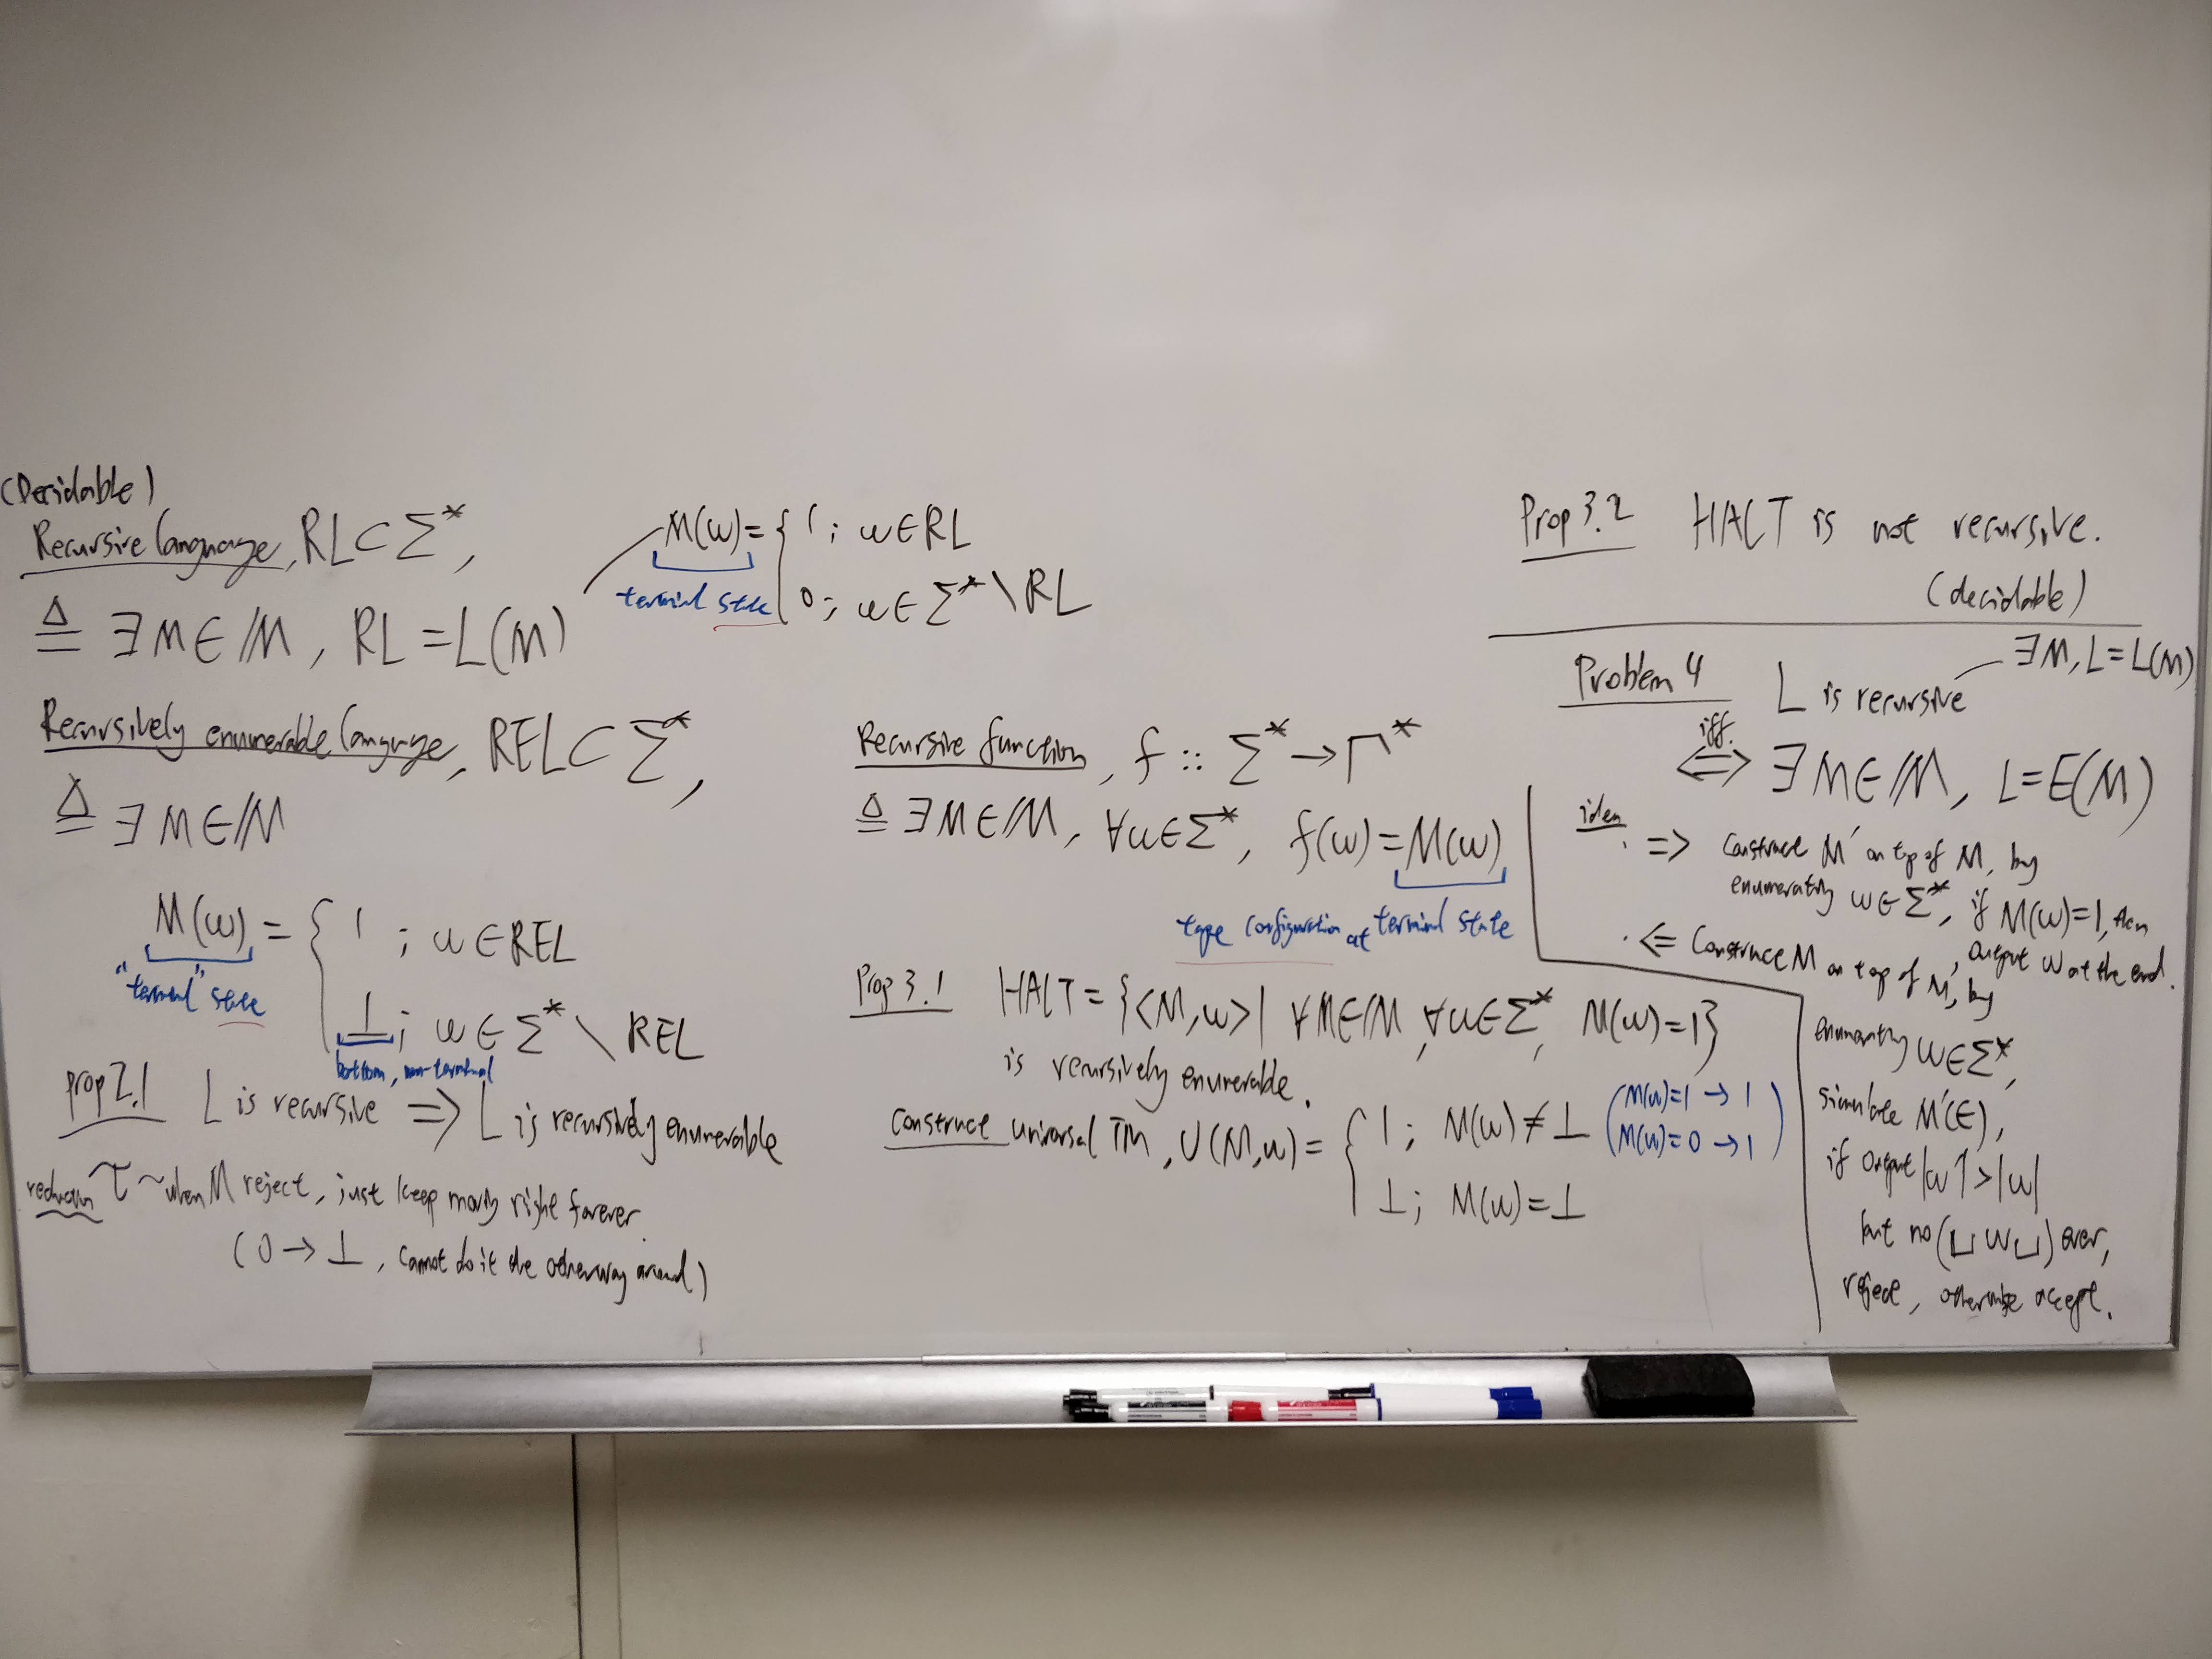 (Decidable)
Recursive language, RL ⊂ Σ*,
≜ ∃M∈𝕄, RL = L(M)
M(w) = { 1 ; w∈RL
terminal state
0 ; w∈Σ* \ RL
Recursively enumerable language, REL ⊂ Σ*,
≜ ∃M∈𝕄
M(w) = { 1 ; w∈REL
"terminal" state
⊥ ; w∈Σ* \ REL
bottom, non-terminal
prop 2.1 L is recursive ⇒ L is recursively enumerable
reduction τ ~ when M reject, just keep moving right forever.
(0 → ⊥, cannot do it the other way around)
Recursive function, f :: Σ* → Γ*
≜ ∃M∈𝕄, ∀w∈Σ*, f(w) = M(w)
tape configuration at terminal state
Prop 3.1 HALT = {<M,w> | ∀M∈𝕄, ∀w∈Σ*, M(w)=1}
is recursively enumerable.
Construct universal TM, U(M,w) = { 1 ; M(w) ≠ ⊥ (M(w)=1 → 1
M(w)=0 → 1)
⊥ ; M(w) = ⊥
Prop 3.2 HALT is not recursive.
(decidable)
Problem 4 L is recursive
∃M, L=L(M)
iff.
⟺ ∃M∈𝕄, L=E(M)
idea
· ⇒ Construct M' on top of M, by
enumerating w∈Σ*, if M(w)=1, then
output w at the end.
· ⇐ Construct M on top of M', by
enumerating w∈Σ*,
simulate M'(ϵ),
if output |w'| > |w|
but no (⊔w⊔) ever,
reject, otherwise accept.